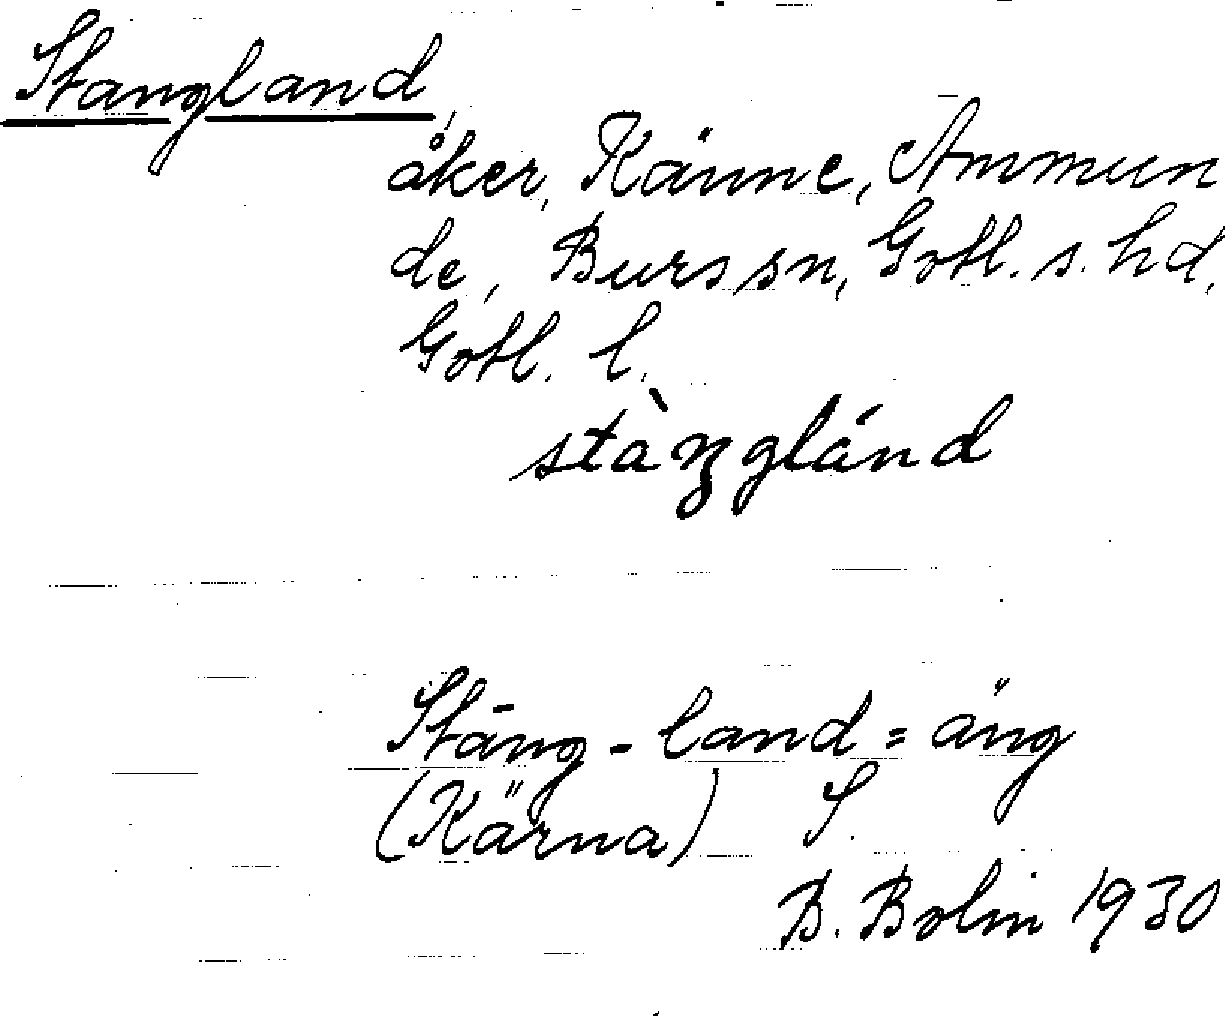 Stangland,
åker, Känne, Ammun
de, Burs sn, Gotl. s. hd,
Gotl. l.
stàŋglánd
Stäng-land = äng
(Kärna) S.
B. Bolin 1930